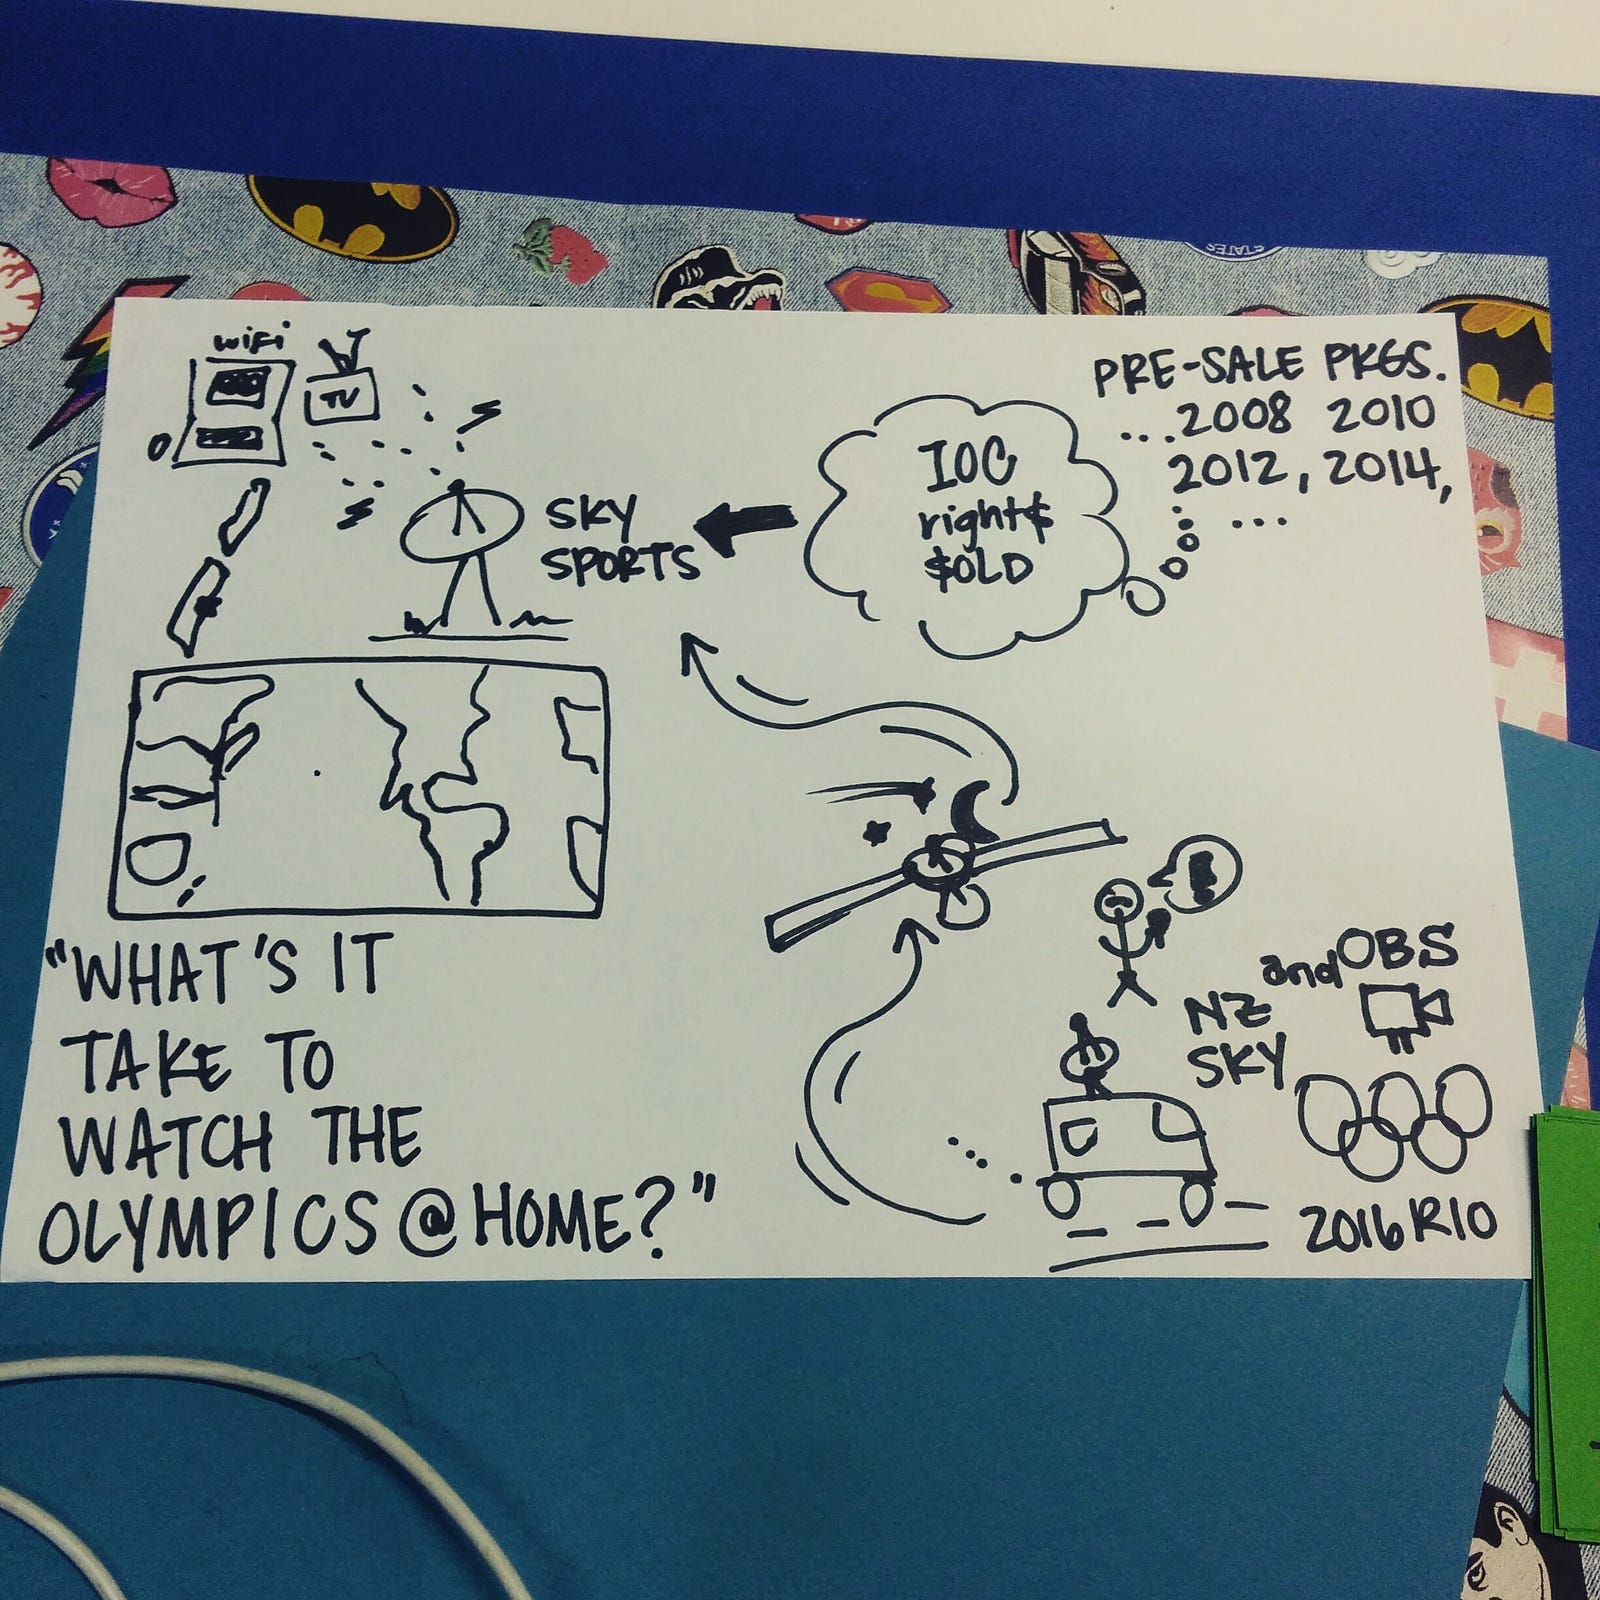 wifi
TV
SKY
SPORTS
IOC
right$
$OLD
PRE-SALE PKGS.
...2008 2010
2012, 2014,
...
and OBS
NZ
SKY
2016 RIO
"WHAT'S IT
TAKE TO
WATCH THE
OLYMPICS @ HOME?"